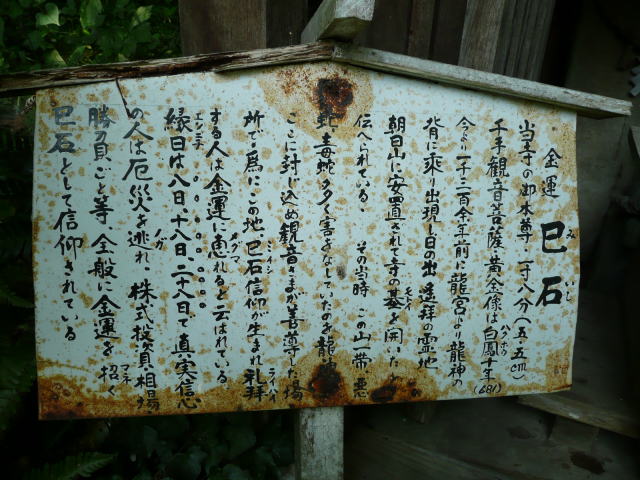 金運 巳石
みいし
当寺の御本尊、一寸八分(五・五cm)
千手観音菩薩、黄金像は白鳳十年(681)
ハクホウ
今より一千三百余年前に龍宮より龍神の
背に乗り出現し日の出 遥拝の霊地
朝日山に安置されて寺の基を開いたもの
モトイ
伝へられている。その当時 この山一帯、悪
蛇、毒蛇多く害をなしていたのを龍神
ここに封じ込め観音さまが善導した場
所で、為に、この地、巳石信仰が生まれ礼拝
ミイシ
ライハイ
する人は金運に恵れると云はれている
メグマ
縁日は八日、十八日、二十八日で真実信心
エンニチ
の人は厄災を逃れ、株式投資、相場
ノガ
勝負ごと等 全般に金運を招く
マネ
巳石として信仰されている